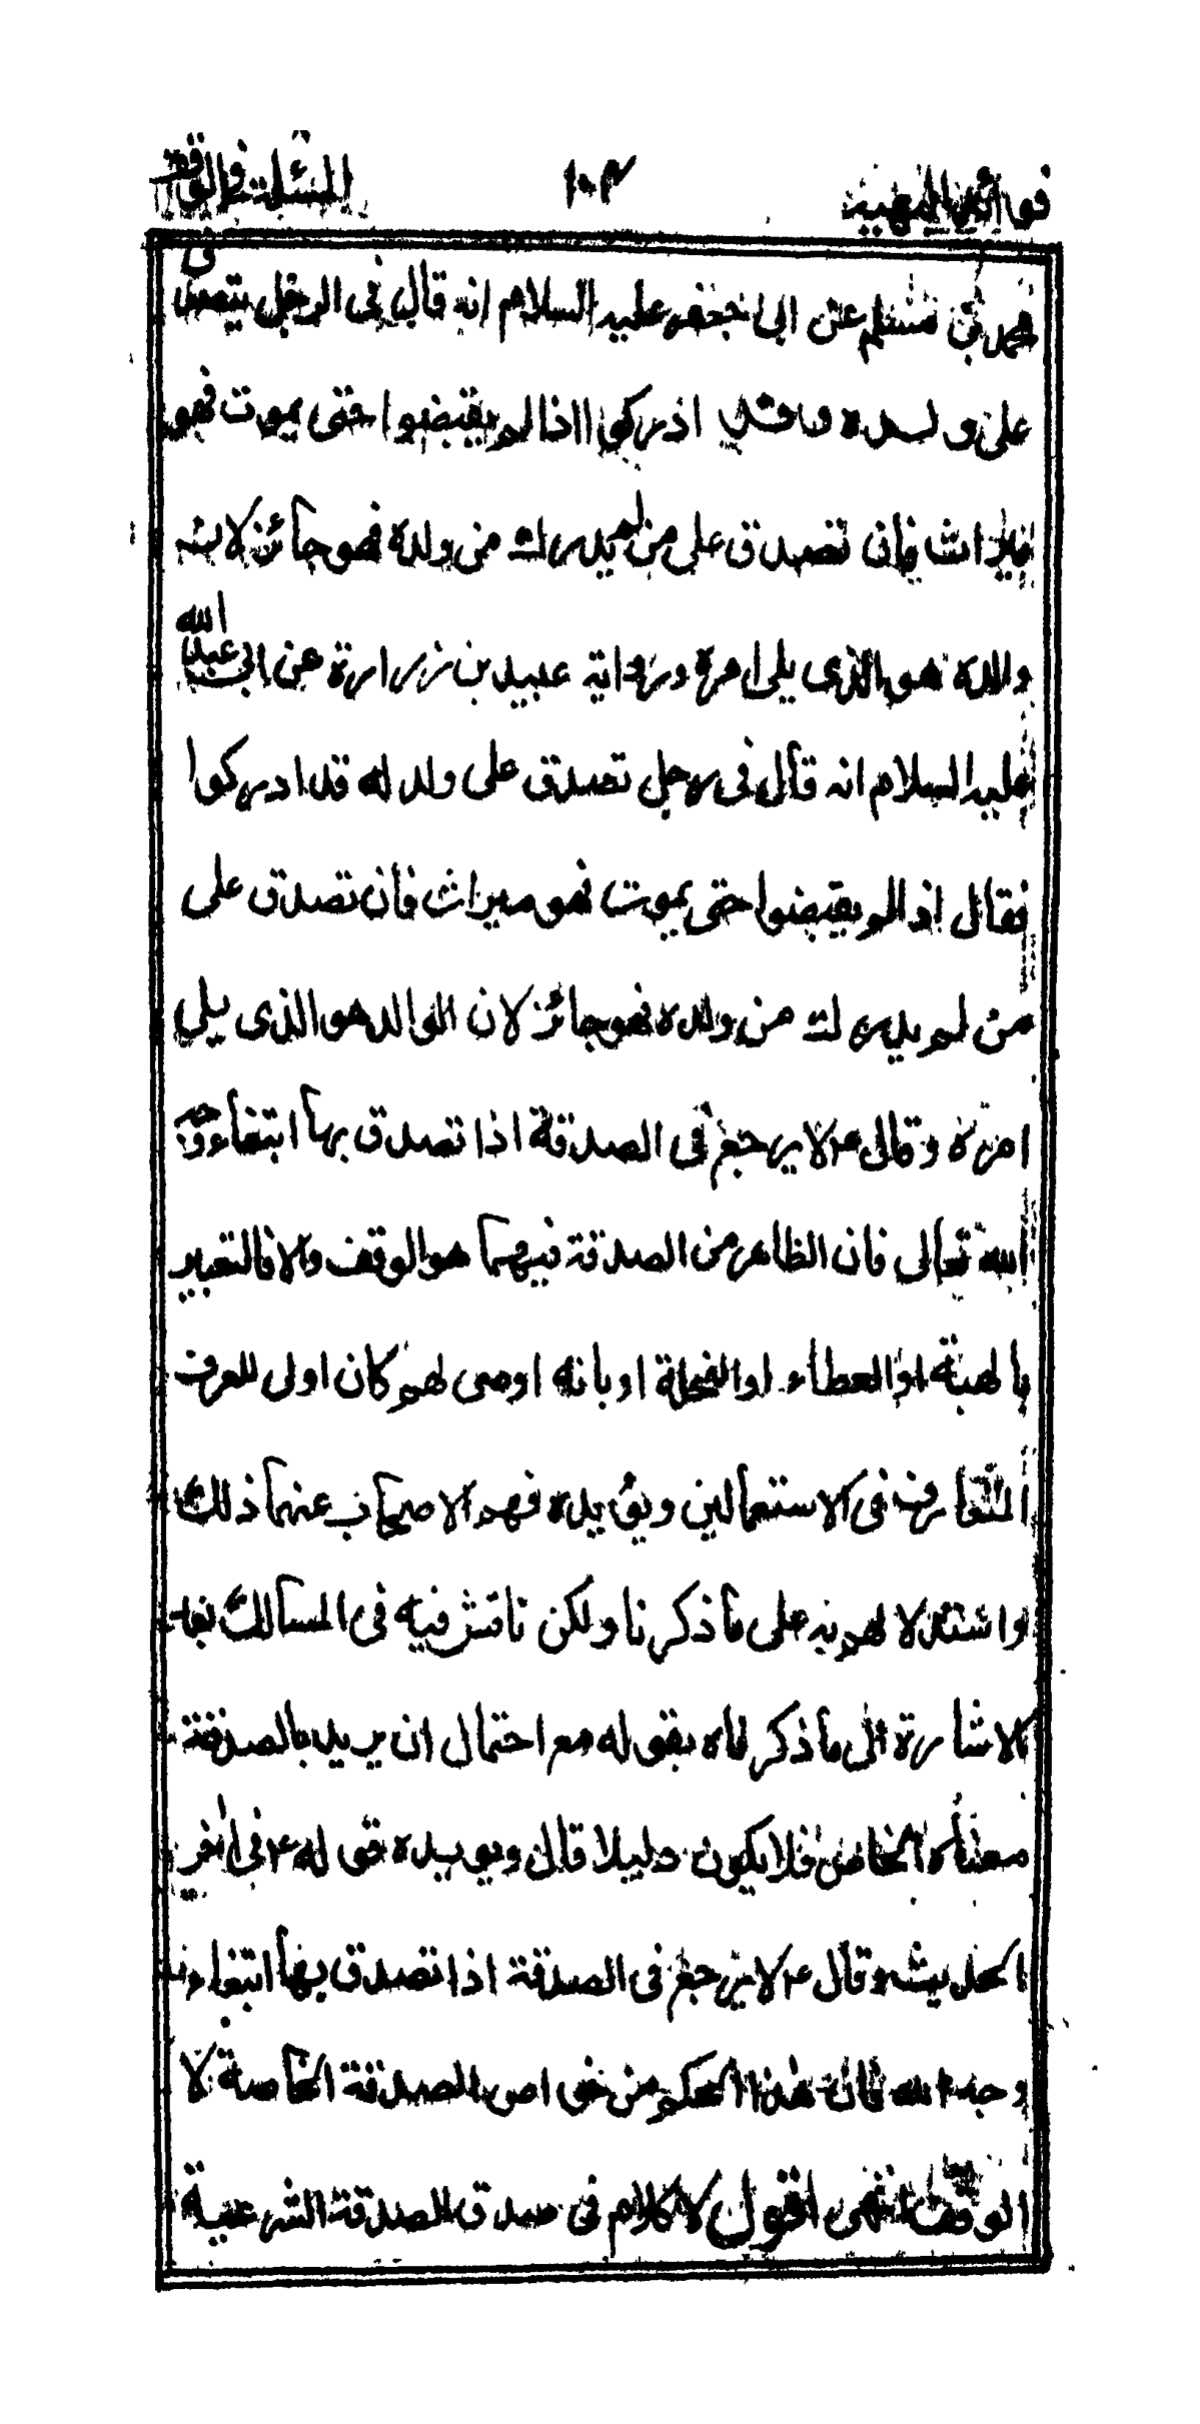 فوائد البهية ١٠٣ المسئلة فى الوقف
محمد بن مسلم عن ابى جعفر عليه السلام انه قال فى الرجل يتصدق
على ولده وقد ادركوا اذا لم يقبضوا حتى يموت فهو
ميراث فان تصدق على من لم يدرك من ولده فهو جائز لانه
والده هو الذى يلى امره ورواية عبيد بن زرارة عن ابى عبد الله
عليه السلام انه قال فى رجل تصدق على ولد له قد ادركوا
فقال اذا لم يقبضوا حتى يموت فهو ميراث فان تصدق على
من لم يدرك من ولده فهو جائز لان الوالد هو الذى يلى
امره وقال ع لا يرجع فى الصدقة اذا تصدق بها ابتغاء وجه
الله تعالى فان الظاهر من الصدقة فيهما هو الوقف والا فالتعبير
بالهبة او العطاء او النحلة او بانه اوصى لهم كان اولى للعرف
المتعارف فى الاستعمالين ويؤيده فهم الاصحاب عنهما ذلك
واستدلالهم به على ما ذكرنا ولكن ناقش فيه فى المسالك بعد
الاشارة الى ما ذكرناه بقوله مع احتمال ان يريد بالصدقة
معناه الخاص فلا يكون دليلا قال ويويده قوله ع فى اخر
الحديث وقال ع لا يرجع فى الصدقة اذا تصدق بها ابتغاء
وجه الله فان هذا الحكم من خواص الصدقة الخاصة لا
الوقف انتهى اقول لا كلام فى صدق الصدقة الشرعية